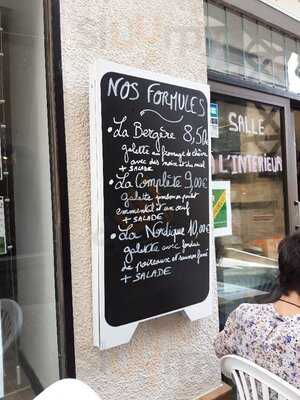 NOS FORMULES
• La Bergère 8,50
galette au fromage de chèvre
avec des noix et du miel
+ SALADE
• La Complète 9,00€
galette jambon poulet
emmental et un oeuf
+ SALADE
• La Nordique 10,00€
galette avec fondue
de poireaux et saumon fumé
+ SALADE
SALLE
À L'INTERIEUR